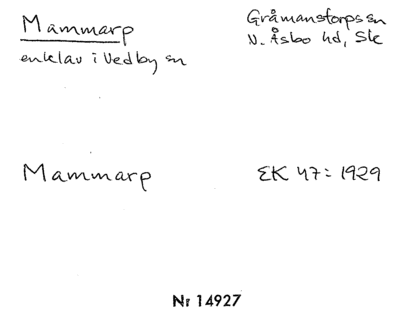 Mammarp
Gråmanstorps sn
N. Åsbo hd, Sk
enklav i Vedby sn
Mammarp
EK 47: 1929
Nr 14927